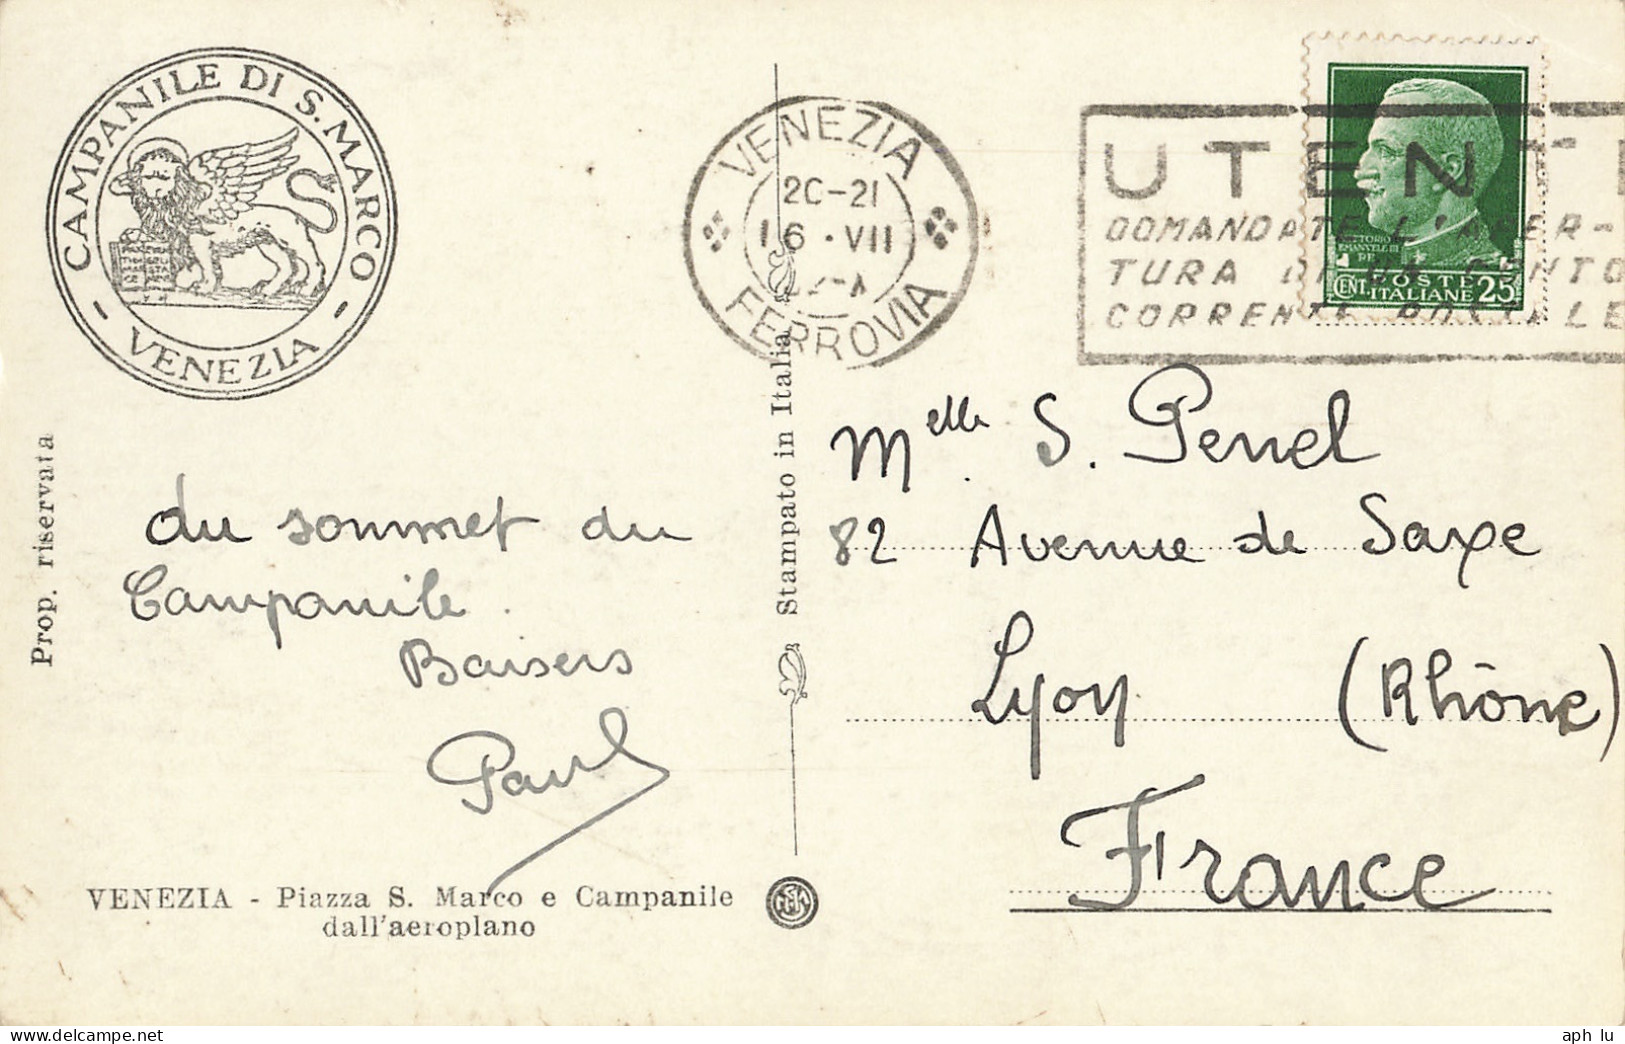 CAMPANILE DI S. MARCO
- VENEZIA -
Prop. riservata
du sommet du
Campanile.
Baisers
Paul
VENEZIA - Piazza S. Marco e Campanile
dall'aeroplano
Stampato in Italia
VENEZIA
20-21
16 · VII
FERROVIA
UTENTI
DOMANDATE L'APER-
TURA DI UN CONTO
CORRENTE POSTALE
VITTORIO
EMANUELE III
RE
POSTE
CENT. ITALIANE 25
Melle S. Penel
82 Avenue de Saxe
Lyon (Rhône)
France
aph lu